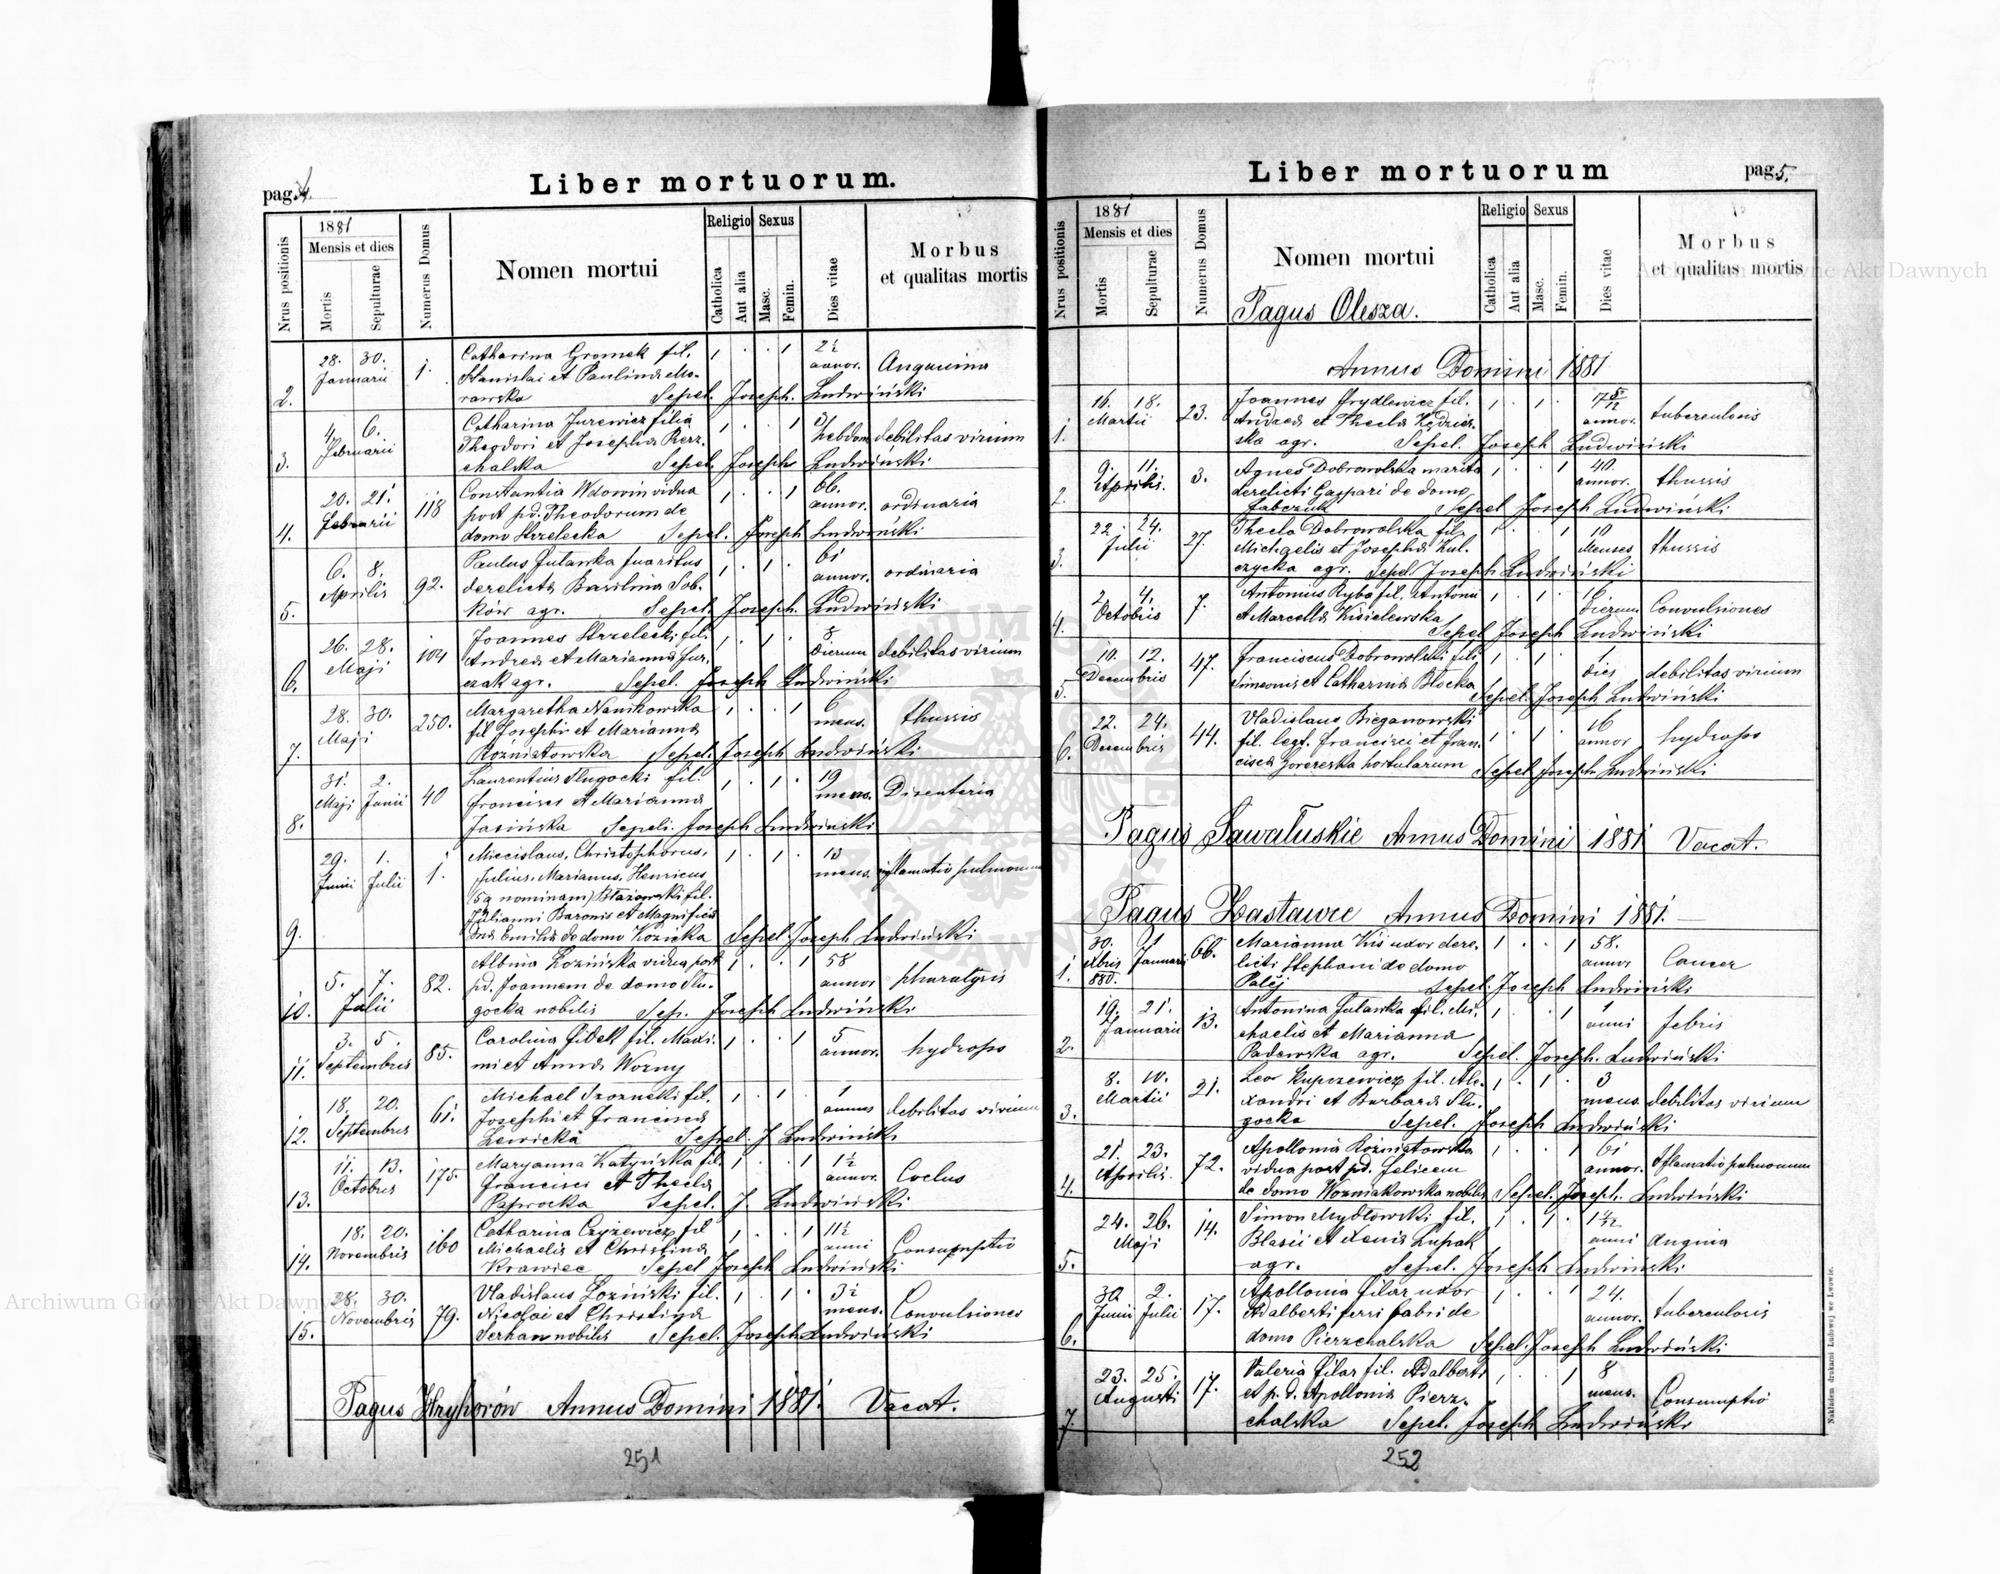 pag. 4.
Liber mortuorum.
Nrus positionis
1881
Mensis et dies
Mortis
Sepulturae
Numerus Domus
Nomen mortui
Religio
Catholica
Aut alia
Sexus
Masc.
Femin.
Dies vitae
Morbus
et qualitas mortis
2. 28. 30. Januarii 1. Catharina Gromek fil. 1 . . 1 2½ annor. Anguinna
Stanislai et Paulina Mo-
rawska Sepel. Joseph. Ludwiński
3. 4. 6. Februarii Catharina Jurewicz filia 1 . . 1 3 hebdom debilitas virium
Theodori et Josepha Pierz-
chalska Sepel. Joseph Ludwiński
4. 20. 21. Februarii 118 Constantia Wdowin vidua 1 . . 1 66. annor. ordinaria
post pd. Theodorum de
domo Strzelecka Sepel. Joseph Ludwiński
5. 6. 8. Aprilis 92. Paulus Julanka maritus 1 . 1 . 61 annor. ordinaria
derelicta Basilina Sob-
ków agr. Sepel. Joseph. Ludwiński
6. 26. 28. Maji 104 Joannes Strzelecki fil. 1 . 1 . 8. dierum debilitas virium
Andrea et Marianna Jur-
czak agr. Sepel. Joseph Ludwiński
7. 28. 30. Maji 250. Margaretha Nanikowska 1 . . 1 6 mens. thussis
fil Josephi et Marianna
Rożniatowska Sepel. Joseph Ludwiński
8. 31. 2. Maji Junii 40 Laurentius Slugocki fil. 1 . 1 . 19 mens. Disenteria
Francisci et Marianna
Jasińska Sepeli. Joseph Ludwinski
9. 29. 1. Junii Julii 1. Miecislaus, Christophorus, 1 . 1 . 13 mens. inflamatio pulmonum
Julius, Marianus, Henricus
(5q nominam) Błażowski fil.
Julianni Baronis et Magnificis
Dna Emilia de domo Kozicka Sepel. Joseph Ludwiński
10. 5. 7. Julii 82. Albina Łozińska vidua post 1 . . 1 58 annor pharalysis
pd. Joannem de domo Slu-
gocka nobilis Sep. Joseph Ludwiński
11. 3. 5. Septembris 85. Carolina Fidek fil. Maxi- 1 . . 1 5 annor. hydrops
mi et Anna Wozny
12. 18. 20. Septembris 61. Michael Szoznski fil. 1 . 1 . 1 annus debilitas virium
Josephi et Francisca
Lewicka Sepel. J Ludwiński
13. 11. 13. Octobris 175. Maryanna Katyńska fil. 1 . . 1 1½ annor. Coclus
Francisci et Thecla
Paprocka Sepel. J. Ludwiński
14. 18. 20. Novembris 160 Catharina Czyżewicz fil 1 . . 1 11½ anni Consumptio
Michaelis et Christina
Krawiec Sepel Joseph Ludwiński
15. 28. 30. Novembris 79. Vladislaus Łoziński fil. 1 . 1 . 3½ mens. Convulsiones
Nicolai et Christina
Serhan nobilis Sepel. Joseph Ludwiński
Pagus Hryhorów Annus Domini 1881. Vacat.
251
Liber mortuorum
pag. 5.
Nrus positionis
1881
Mensis et dies
Mortis
Sepulturae
Numerus Domus
Nomen mortui
Pagus Olesza.
Religio
Catholica
Aut alia
Sexus
Masc.
Femin.
Dies vitae
Morbus
et qualitas mortis
Annus Domini 1881
1. 16. 18. Martii 23. Joannes Frydlewicz fil. 1 . 1 . 17 5/12 annor. tuberculosis
Andrea et Thecla Kędzier-
ska agr. Sepel. Joseph Ludwiński
2. 9. 11. Aprilis. 3. Agnes Dobrowolska marita 1 . . 1 40. annor. thussis
derelicti Gaspari de domo
Babczuk Sepel Joseph Ludwiński
3. 22. 24. Julii 27. Thecla Dobrowolska fil. 1 . . 1 10 Menses thussis
Michaelis et Josepha Kul-
czycka agr. Sepel. Joseph Ludwiński
4. 2. 4. Octobris 7. Antonius Ryba fil. Antonii 1 . 1 . 16 dierum Convulsiones
et Marcella Kisielewska
Sepel Joseph Ludwiński
5. 10. 12. Decembris 47. Franciscus Dobrowolski fili 1 . 1 . 1 dies debilitas virium
Simeonis et Catharina Błocka
Sepel. Joseph Ludwiński
6. 22. 24. Decembris 44. Vladislaus Bieganowski 1 . 1 . 16 annor hydrops
fil. legt. Francisci et Fran-
cisca Gorczeska hortularum Sepel Joseph Ludwiński
Pagus Sawałuskie Annus Domini 1881 Vacat.
Pagus Zastawce Annus Domini 1881.
1. 30. 1 Xbris Januarii 880. 66. Marianna Kiś uxor dere- 1 . . 1 58. annor Cancer
licti Stephani de domo
Palij Sepel. Joseph Ludwiński
2. 19. 21. Januarii 13. Antonina Julanka fil. Mi- 1 . . 1 1 anni febris
chaelis et Marianna
Padewska agr. Sepel. Joseph. Ludwiński
3. 8. 10. Martii 21. Leon Kuposewicz fil. Ale- 1 . 1 . 3 mens. debilitas virium
xandri et Barbara Slu-
gocka Sepel. Joseph Ludwiński
4. 21. 23. Aprilis. 72. Apollonia Rożniatowska 1 . . 1 61 annor. Iflamatio pulmonum
vidua post pd. Felicem
de domo Wozniakowska nobilis Sepel. Joseph. Ludwiński
5. 24. 26. Maji 14. Simon Mydłowski fil. 1 . 1 . anni Angina
Blasii et Xenia Lupak
agr. Sepel. Joseph Ludwiński
6. 30. 2. Junii Julii 17. Apollonia Filar uxor 1 . . 1 24. annor. tuberculosis
Adalberti ferri fabri de
domo Pierzchalska Sepel. Joseph Ludwiński
7. 23. 25. Augusti 17. Valeria Filar fil. Adalberti 1 . . 1 8 mens. Consumptio
et p. d. Apollonia Pierz-
chalska Sepel. Joseph Ludwiński
252
Nakładem drukarni Ludowej we Lwowie.
Archiwum Główne Akt Dawnych
Archiwum Główne Akt Dawnych